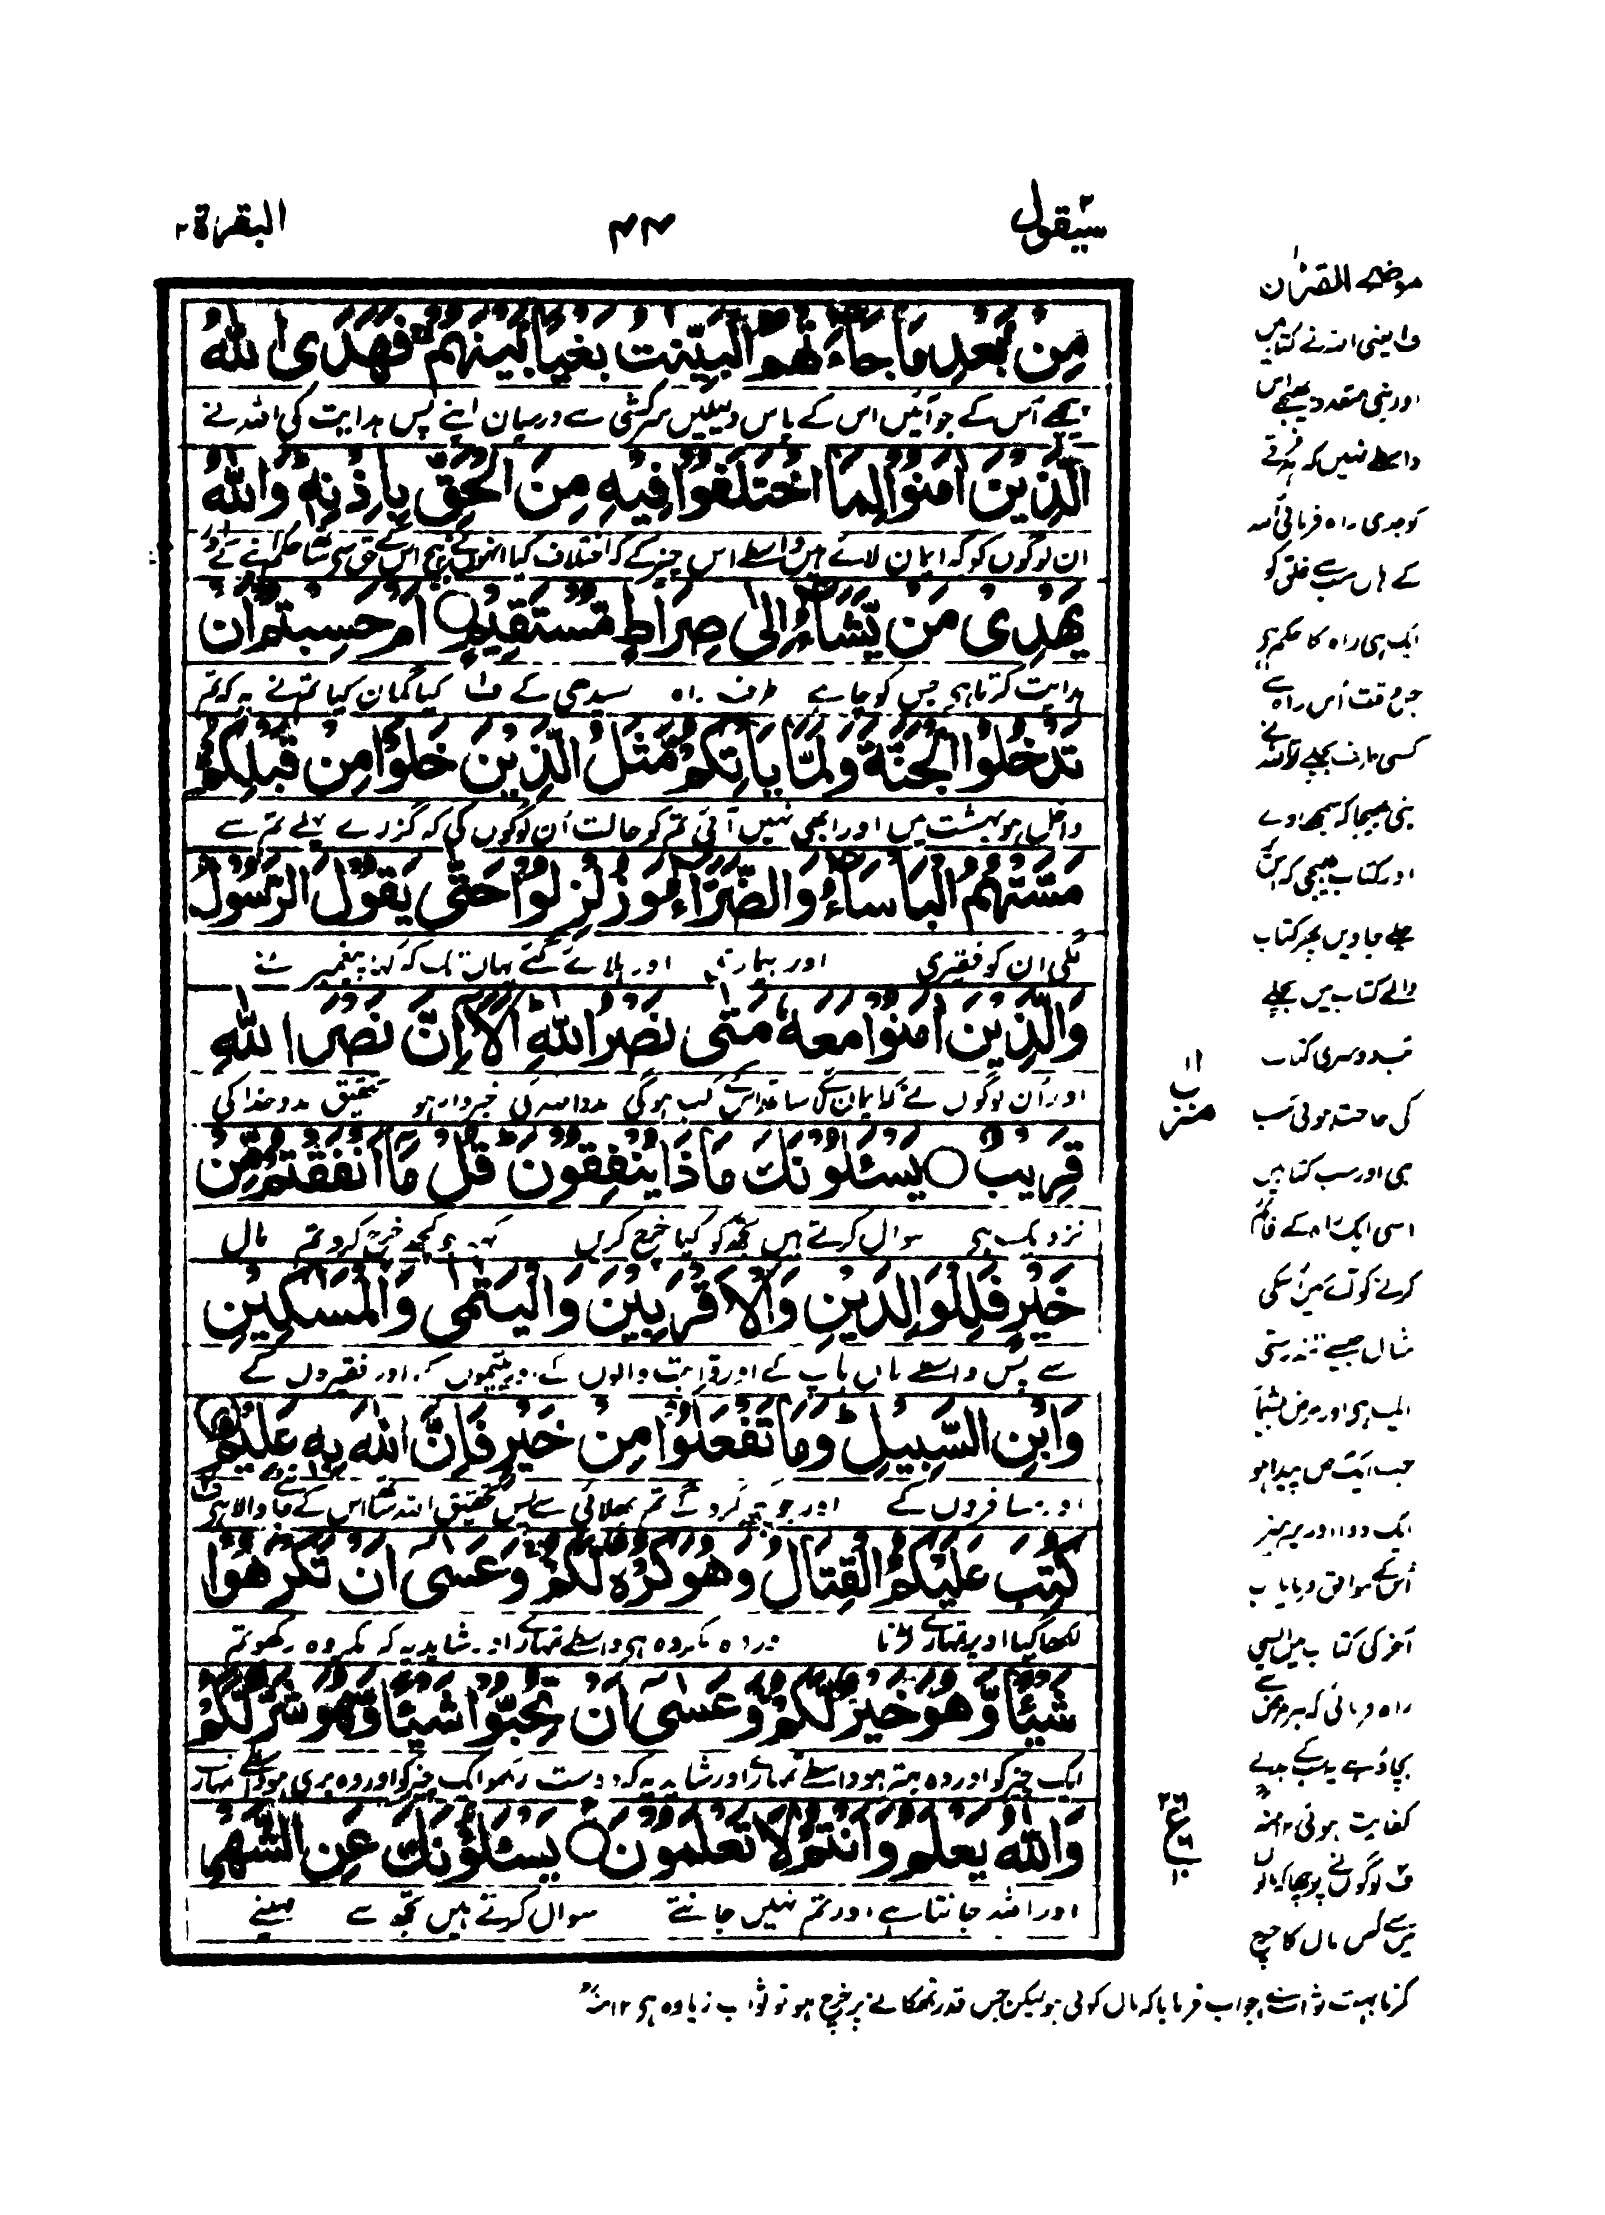 سیقول ۲
۴۴
البقرة ۲
مِنْ بَعْدِ مَا جَآءَتْهُمُ الْبَيِّنٰتُ بَغْيًا بَيْنَهُمْ فَهَدَى اللّٰهُ
پیچھے اُس کے جو آئیں اس کے پاس دلیلیں سرکشی سے درمیان اپنے پس ہدایت کی اللہ نے
الَّذِيْنَ اٰمَنُوْا لِمَا اخْتَلَفُوْا فِيْهِ مِنَ الْحَقِّ بِاِذْنِهٖ وَاللّٰهُ
ان لوگوں کو کہ ایمان لائے ہیں واسطے اس چیز کے کہ اختلاف کیا انہوں نے بیچ اس کے حق سے ساتھ حکم اپنے کے
يَهْدِيْ مَنْ يَّشَآءُ اِلٰى صِرَاطٍ مُّسْتَقِيْمٍ ○ اَمْ حَسِبْتُمْ اَنْ
ہدایت کرتا ہی جس کو چاہے طرف راہ سیدھی کے ف۱ کیا گمان کیا تم نے یہ کہ تم
تَدْخُلُوا الْجَنَّةَ وَلَمَّا يَاْتِكُمْ مَّثَلُ الَّذِيْنَ خَلَوْا مِنْ قَبْلِكُمْ
داخل ہو بہشت میں اور ابھی نہیں آئی تم کو حالت اُن لوگوں کی کہ گزرے پہلے تم سے
مَسَّتْهُمُ الْبَاْسَآءُ وَالضَّرَّآءُ وَزُلْزِلُوْا حَتّٰى يَقُوْلَ الرَّسُوْلُ
لگی ان کو فقیری اور بیماری اور ہلائے گئے یہاں تک کہ کہا پیغمبر نے
وَالَّذِيْنَ اٰمَنُوْا مَعَهٗ مَتٰى نَصْرُ اللّٰهِ اَلَآ اِنَّ نَصْرَ اللّٰهِ
اور اُن لوگوں نے کہ ایمان لائے ساتھ اس کے کب ہوگی مدد اللہ کی خبردار ہو تحقیق مدد خدا کی
قَرِيْبٌ ○ يَسْـَٔلُوْنَكَ مَاذَا يُنْفِقُوْنَ قُلْ مَآ اَنْفَقْتُمْ مِّنْ
نزدیک ہی سوال کرتے ہیں تجھ کو کیا خرچ کریں کہہ جو کچھ خرچ کرو تم مال
خَيْرٍ فَلِلْوَالِدَيْنِ وَالْاَقْرَبِيْنَ وَالْيَتٰمٰى وَالْمَسٰكِيْنِ
سے پس واسطے ماں باپ کے اور قرابت والوں کے اور یتیموں کے اور فقیروں کے
وَابْنِ السَّبِيْلِ وَمَا تَفْعَلُوْا مِنْ خَيْرٍ فَاِنَّ اللّٰهَ بِهٖ عَلِيْمٌ
اور مسافروں کے اور جو کچھ کرو گے تم بھلائی سے پس تحقیق اللہ ساتھ اس کے جاننے والا ہی ف۲
كُتِبَ عَلَيْكُمُ الْقِتَالُ وَهُوَ كُرْهٌ لَّكُمْ وَعَسٰٓى اَنْ تَكْرَهُوْا
لکھا گیا اوپر تمہارے لڑنا اور وہ مکروہ ہی واسطے تمہارے اور شاید یہ کہ مکروہ رکھو تم
شَيْـًٔا وَّهُوَ خَيْرٌ لَّكُمْ وَعَسٰٓى اَنْ تُحِبُّوْا شَيْـًٔا وَّهُوَ شَرٌّ لَّكُمْ
ایک چیز کو اور وہ بہتر ہو واسطے تمہارے اور شاید یہ کہ دوست رکھو ایک چیز کو اور وہ بری ہو واسطے تمہارے
وَاللّٰهُ يَعْلَمُ وَاَنْتُمْ لَا تَعْلَمُوْنَ ○ يَسْـَٔلُوْنَكَ عَنِ الشَّهْرِ
اور اللہ جانتا ہے اور تم نہیں جانتے سوال کرتے ہیں تجھ سے مہینے
موضح القرآن
ف۱ یعنی اللہ نے کتابیں
اور نبی متعدد بھیجے اس
واسطے نہیں کہ ہر فرقے
کو جدی راہ فرمائی اللہ
کے ہاں سے سب خلق کو
ایک ہی راہ کا حکم ہی
جس وقت اُس راہ سے
کسی طرف بچلے تو اللہ نے
نبی بھیجا کہ سمجھاوے
اور کتاب بھیجی کہ اس
چلے جاویں پھر کتاب
والے کتاب میں بچلے
تب دوسری کتاب
کی حاجت ہوئی سب
نبی اور سب کتابیں
اسی ایک راہ کے قائم
کرنے کو آئے ہیں اسکی
مثال جیسے تندرستی
ایک ہی اور مرض بیشمار
جب ایک مرض پیدا ہو
ایک دوا اور پرہیز
اُس کے موافق فرمایا اب
آخر کی کتاب میں ایسی
راہ فرمائی کہ ہر مرض سے
بچاؤ ہے یہ سب کے بدلے
کفایت ہوئی ۱۲ منہ
ف۲ لوگوں نے پوچھا کہ مالوں
میں سے کس مال کا خرچ
کرنا بہت ثواب ہے جواب فرمایا کہ مال کوئی ہو لیکن جس قدر ٹھکانے پر خرچ ہو تو ثواب زیادہ ہی ۱۲ منہ